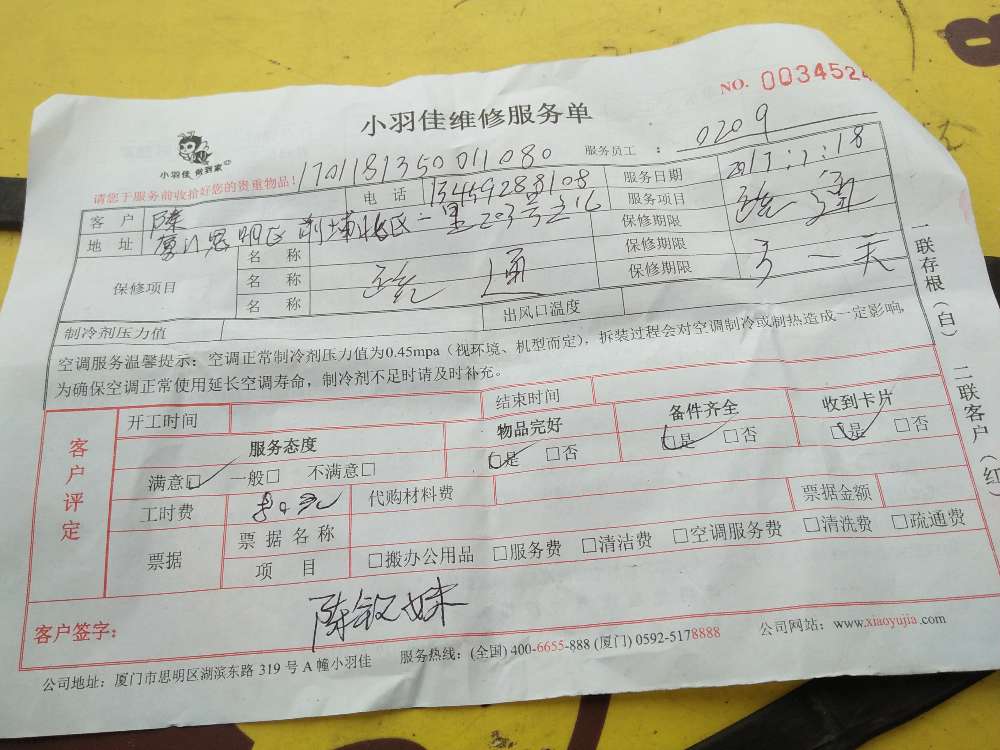 NO. 003452
小羽佳维修服务单
小羽佳 做到家
170118135001 1080
服务员工： 0209
请您于服务前收拾好您的贵重物品！
客 户 陈 电 话 服务日期 2017.1.18
地 址 厦门思明区 服务项目 疏通
保修项目 名 称 保修期限
名 称 疏通 保修期限 一天
名 称 保修期限
制冷剂压力值 出风口温度
空调服务温馨提示：空调正常制冷剂压力值为0.45mpa（视环境、机型而定），拆装过程会对空调制冷或制热造成一定影响，
为确保空调正常使用延长空调寿命，制冷剂不足时请及时补充。
一联存根（白） 二联客户（红）
客户评定
开工时间 结束时间
服务态度 物品完好 备件齐全 收到卡片
满意□ 一般□ 不满意□ □是 □否 □是 □否 □是 □否
工时费 代购材料费
票据 票据名称 票据金额
项 目 □搬办公用品 □服务费 □清洁费 □空调服务费 □清洗费 □疏通费
客户签字： 陈
公司地址：厦门市思明区湖滨东路 319 号 A 幢小羽佳 服务热线：(全国) 400-6655-888 (厦门) 0592-5178888 公司网站：www.xiaoyujia.com